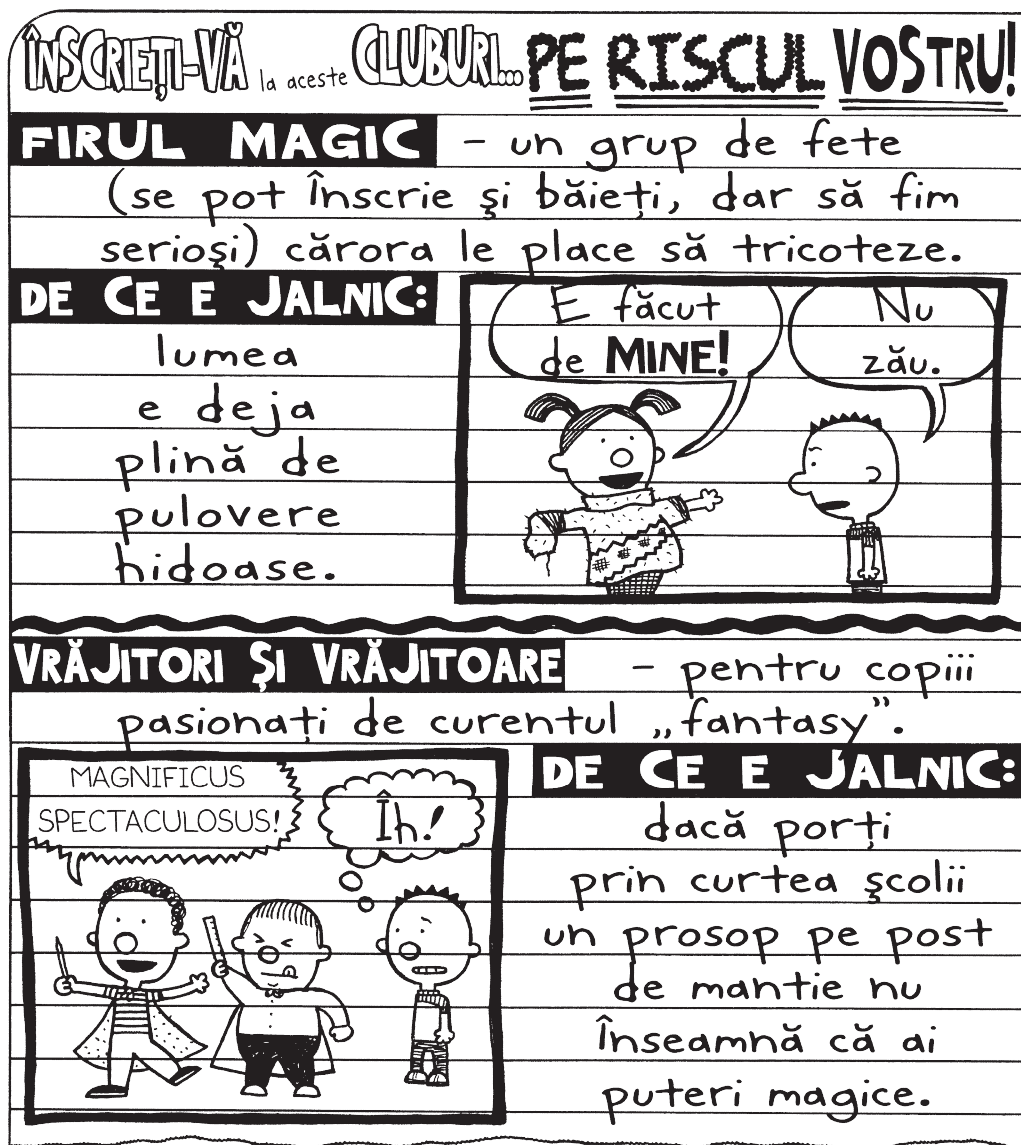 ÎNSCRIEȚI-VĂ la aceste CLUBURI... PE RISCUL VOSTRU!
FIRUL MAGIC - un grup de fete
(se pot înscrie și băieți, dar să fim
serioși) cărora le place să tricoteze.
DE CE E JALNIC:
lumea
e deja
plină de
pulovere
hidoase.
E făcut
de MINE!
Nu
zău.
VRĂJITORI ȘI VRĂJITOARE - pentru copiii
pasionați de curentul „fantasy”.
MAGNIFICUS
SPECTACULOSUS!
Îh!
DE CE E JALNIC:
dacă porți
prin curtea școlii
un prosop pe post
de mantie nu
înseamnă că ai
puteri magice.